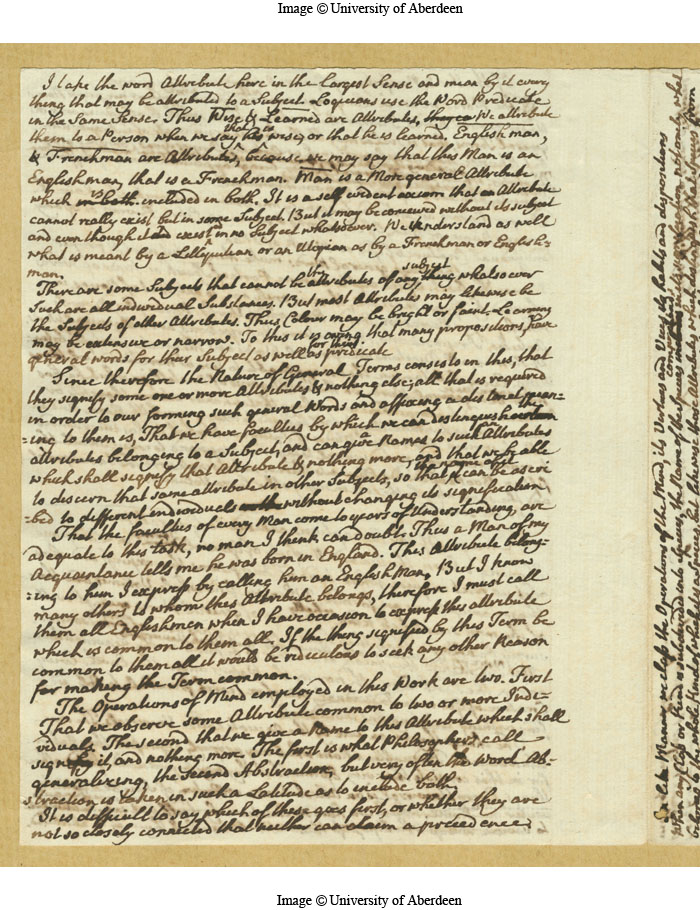 Image © University of Aberdeen
I take the word Attribute here in the largest Sense and mean by it every
thing that may be attributed to a Subject. Logicians use the Word Predicate
in the Same Sense. Thus Wise & Learned are Attributes, We attribute
them to a Person when we say that he is wise, or that he is learned. English man,
& Frenchman are Attributes, because we may say that this Man is an
Englishman, that is a Frenchman. Man is a More general Attribute
which is included in both. It is a self evident axiom that an Attribute
cannot really exist but in some Subject. But it may be conceived without its subject
and even though it exist in no Subject whatsoever. We understand as well
what is meant by a Lilliputian or an Utopian as by a Frenchman or English-
man.
There are some Subjects that cannot be the attributes of any subject whatsoever
Such are all individual Substances. But most Attributes may likewise be
the Subjects of other Attributes. Thus Colour may be bright or faint. Learning
may be extensive or narrow. To this it is owing that many propositions have
general words for their Subject as well as predicate
Since therefore the Nature of General Terms consists in this, that
they signify some one or more Attributes & nothing else; all that is required
in order to our forming such general Words and affixing a distinct mean=
=ing to them is, That we have faculties by which we can distinguish the
attributes belonging to a Subject, and can give Names to such Attributes
which shall signify that Attribute & nothing more, and that we be able
to discern that same attribute in other Subjects, so that the name of it can be ascri
=bed to different individuals without changing its signification
That the faculties of every Man come to years of Understanding, are
adequate to this task, no man I think can doubt. Thus a Man of my
Acquaintance tells me he was born in England. This Attribute belong-
=ing to him I express by calling him an English Man. But I know
many others to whom this Attribute belongs, therefore I must call
them all Englishmen when I have occasion to express this attribute
which is common to them all. If the thing signified by this Term be
common to them all it would be ridiculous to seek any other Reason
for making the Term common.
The Operations of Mind employed in this Work are two. First
That we observe some Attribute common to two or more Indi-
viduals. The second that we give a Name to this Attribute which shall
signify it, and nothing more. The first is what Philosophers call
generalizing, the Second Abstraction, but very often the Word Ab-
straction is taken in such a Latitude as to include both.
It is difficult to say which of these goes first, or whether they are
not so closely connected that neither can claim a precedence.
In like Manner we class the Operations of the Mind, its Virtues and Vices, its habits and dispositions
Image © University of Aberdeen